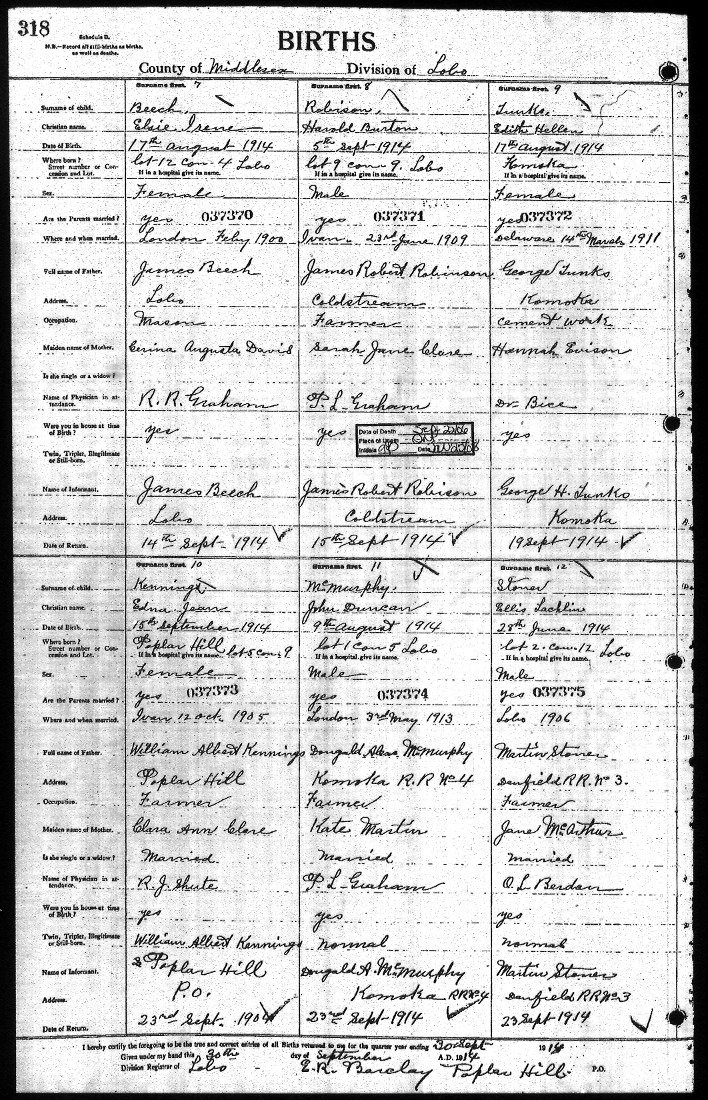 318
Schedule B.
N.B.—Record all still-births as births, as well as deaths.
BIRTHS
County of Middlesex Division of Lobo
Surname first. 7 Surname first. 8 Surname first. 9
Surname of child. Beech, Robison, Tunks,
Christian name. Elsie Irene Harold Burton Edith Hellen
Date of Birth. 17th August 1914 5th Sept 1914 17th August 1914
Where born? Street number or Concession and Lot. lot 12 con 4 Lobo lot 9 con 9. Lobo Komoka
If in a hospital give its name. If in a hospital give its name. If in a hospital give its name.
Sex. Female Male Female
Are the Parents married? yes 037370 yes 037371 yes 037372
Where and when married. London Feby 1900 Ivan 23rd June 1909 Delaware 14th March 1911
Full name of Father. James Beech James Robert Robinson George Tunks
Address. Lobo Coldstream Komoka
Occupation. Mason Farmer cement work
Maiden name of Mother. Augusta Davis Sarah Jane Clare Hannah Evison
Is she single or a widow?
Name of Physician in attendance. R. R. Graham P. L. Graham Dr Bice
Were you in house at time of Birth? yes yes yes
Date of Death
Place of Death Ont
Initials Date
Twin, Triplet, Illegitimate or Still-born.
Name of Informant. James Beech James Robert Robison George H. Tunks
Address. Lobo Coldstream Komoka
Date of Return. 14th Sept 1914 15th Sept 1914 19 Sept 1914
Surname first. 10 Surname first. 11 Surname first. 12
Surname of child. Kennings McMurphy. Stoner
Christian name. Edna Jean John Duncan Ellis Lachlin
Date of Birth. 15th September 1914 9th August 1914 28th June 1914
Where born? Street number or Concession and Lot. Poplar Hill lot 5 con 9 lot 1 con 5 Lobo lot 2 con 12 Lobo
If in a hospital give its name. If in a hospital give its name. If in a hospital give its name.
Sex. Female Male Male
Are the Parents married? yes 037373 yes 037374 yes 037375
Where and when married. Ivan 12 oct. 1905 London 3rd May 1913 Lobo 1906
Full name of Father. William Albert Kennings Dougald McMurphy Martin Stoner
Address. Poplar Hill Komoka R.R No 4 Denfield RR. No 3.
Occupation. Farmer Farmer Farmer
Maiden name of Mother. Clara Ann Clare Kate Martin Jane McArthur
Is she single or a widow? Married Married married
Name of Physician in attendance. R. J. Shute P. L. Graham O. L. Berdan
Were you in house at time of Birth? yes yes yes
Twin, Triplet, Illegitimate or Still-born. William Albert Kennings normal normal
Name of Informant. Poplar Hill Dougald A. McMurphy Martin Stoner
Address. P.O. Komoka RR No 4 Denfield RR No 3
Date of Return. 23rd Sept. 1904 23rd Sept 1914 23 Sept 1914
I hereby certify the foregoing to be the true and correct entries of all Births returned to me for the quarter year ending 30 Sept 1914
Given under my hand this 30th day of September A.D. 1914
Division Registrar of Lobo E. R. Barclay Poplar Hill P.O.